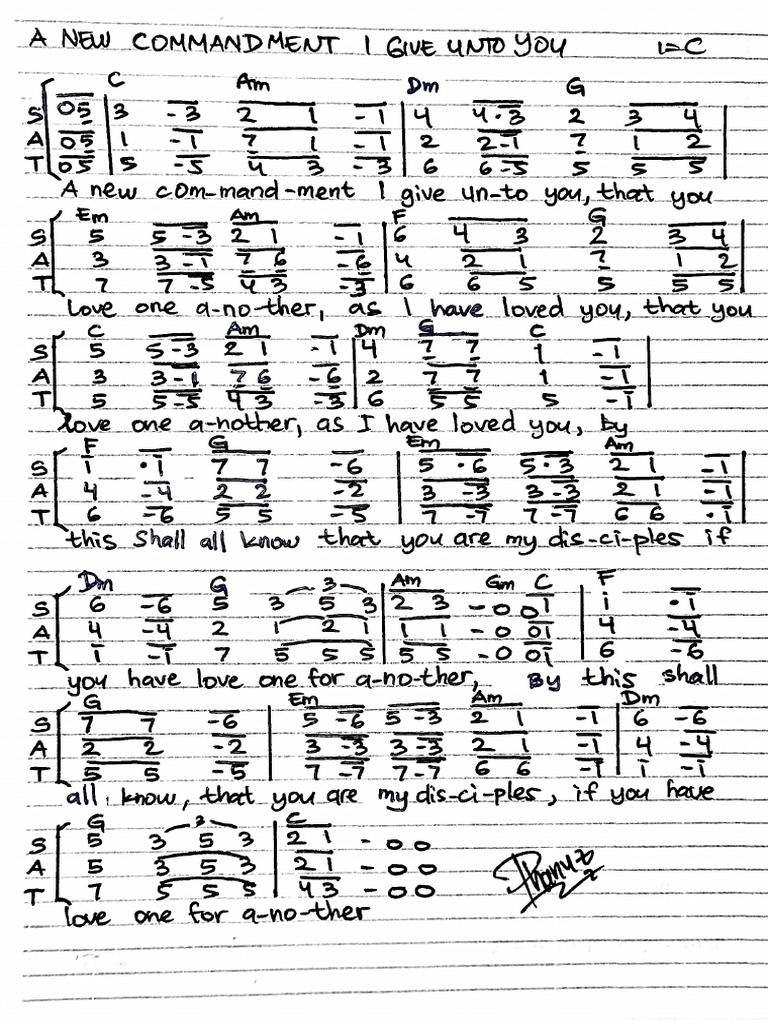 A NEW COMMANDMENT I GIVE UNTO YOU 1=C
C Am Dm G
S 05 3 -3 2 1 -1 4 4·3 2 3 4
A 05 1 -1 7 1 -1 2 2-1 7 1 2
T 05 5 -5 4 3 -3 6 6-5 5 5 5
A new com-mand-ment I give un-to you, that you
Em Am F G
S 5 5-3 2 1 -1 6 4 3 2 3 4
A 3 3-1 7 6 -6 4 2 1 7 1 2
T 7 7-5 4 3 -3 6 6 5 5 5 5
love one a-no-ther, as I have loved you, that you
C Am Dm G C
S 5 5-3 2 1 -1 4 7 7 1 -1
A 3 3-1 7 6 -6 2 7 7 1 -1
T 5 5-5 4 3 -3 6 5 5 5 -1
love one a-nother, as I have loved you, by
F G Em Am
S 1 ·1 7 7 -6 5 ·6 5·3 2 1 -1
A 4 -4 2 2 -2 3 -3 3-3 2 1 -1
T 6 -6 5 5 -5 7 -7 7-7 6 6 ·1
this shall all know that you are my dis-ci-ples if
Dm G 3 Am Gm C F
S 6 -6 5 3 5 3 2 3 -0 01 1 ·1
A 4 -4 2 1 2 1 1 1 -0 01 4 -4
T 1 -1 7 5 5 5 5 5 -0 01 6 -6
you have love one for a-no-ther, By this shall
G Em Am Dm
S 7 7 -6 5 -6 5-3 2 1 -1 6 -6
A 2 2 -2 3 -3 3-3 2 1 -1 4 -4
T 5 5 -5 7 -7 7-7 6 6 -1 1 -1
all know, that you are my dis-ci-ples, if you have
G 3 C
S 5 3 5 3 2 1 -00
A 5 3 5 3 2 1 -00
T 7 5 5 5 4 3 -00
love one for a-no-ther